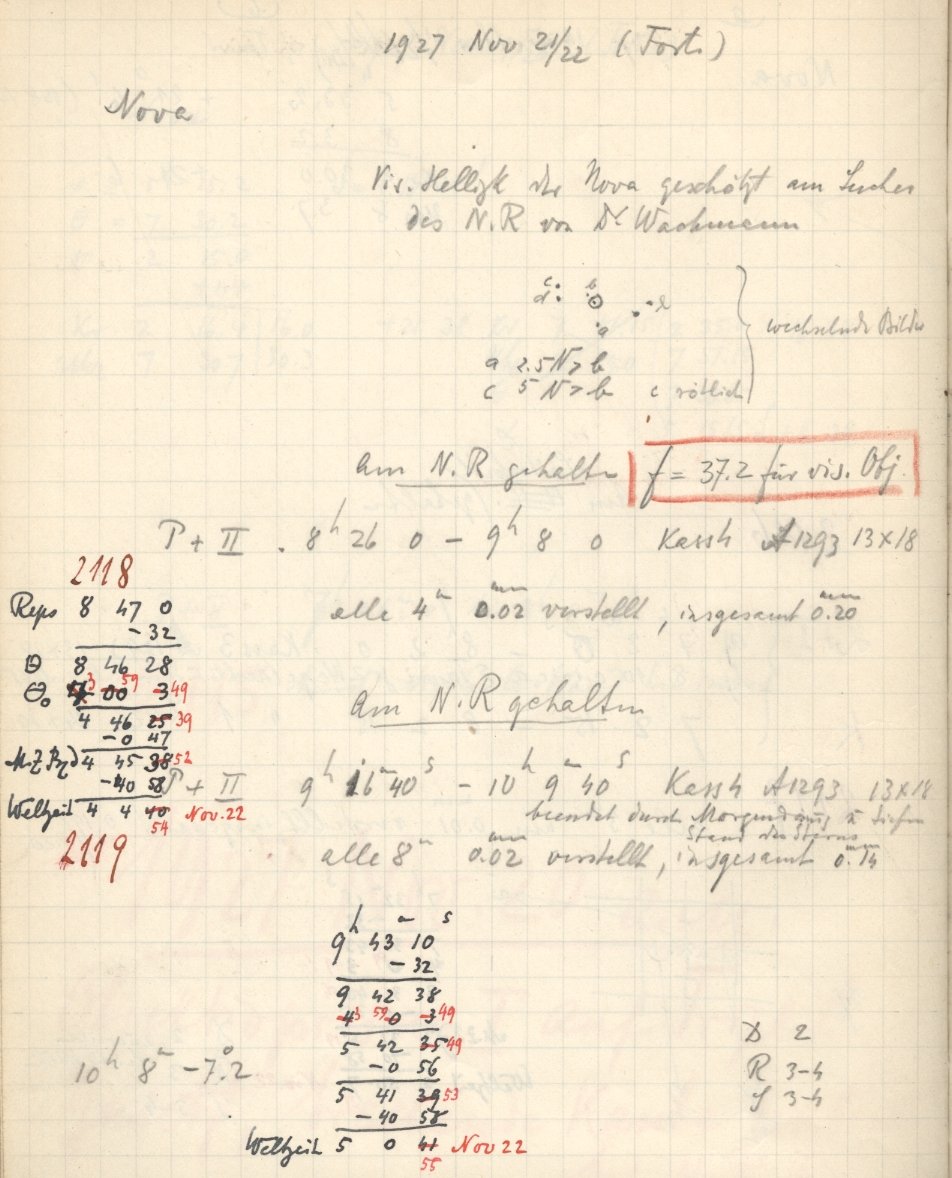 1927 Nov 21/22 (Forts.)
Nova
Vis. Helligk der Nova geschätzt am Sucher
des N.R von Dr. Wachmann
c b
d
a
a 2.5 N > b
c 5 N > b c rötlich
wechselnde Bilder
am N.R gehalten f = 37.2 für vis. Obj.
P + II . 8h 26 0 – 9h 8 0 Kassh A1293 13×18
2118
Reps 8 47 0
alle 4m 0.02 mm verstellt, insgesamt 0.20 mm
– 32
8 46 28
3 59 49
4 00 3
4 46 25 39
am N.R gehalten
– 0 47
4 45 38 52
– 40 58
P + II 9h 16m 40s – 10h 9m 40s Kassh A1293 13×18
Weltzeit 4 4 40 Nov. 22
54
beendet durch Morgendämg u tiefen
Stand des Sterns
2119
alle 8m 0.02 mm verstellt, insgesamt 0.14 mm
9h 43m 10s
– 32
9 42 38
4 3 59 0 3 49
5 42 35 49
– 0 56
10h 8m –7.°2
5 41 39 53
– 40 58
Weltzeit 5 0 41 Nov 22
55
D 2
R 3-4
S 3-4